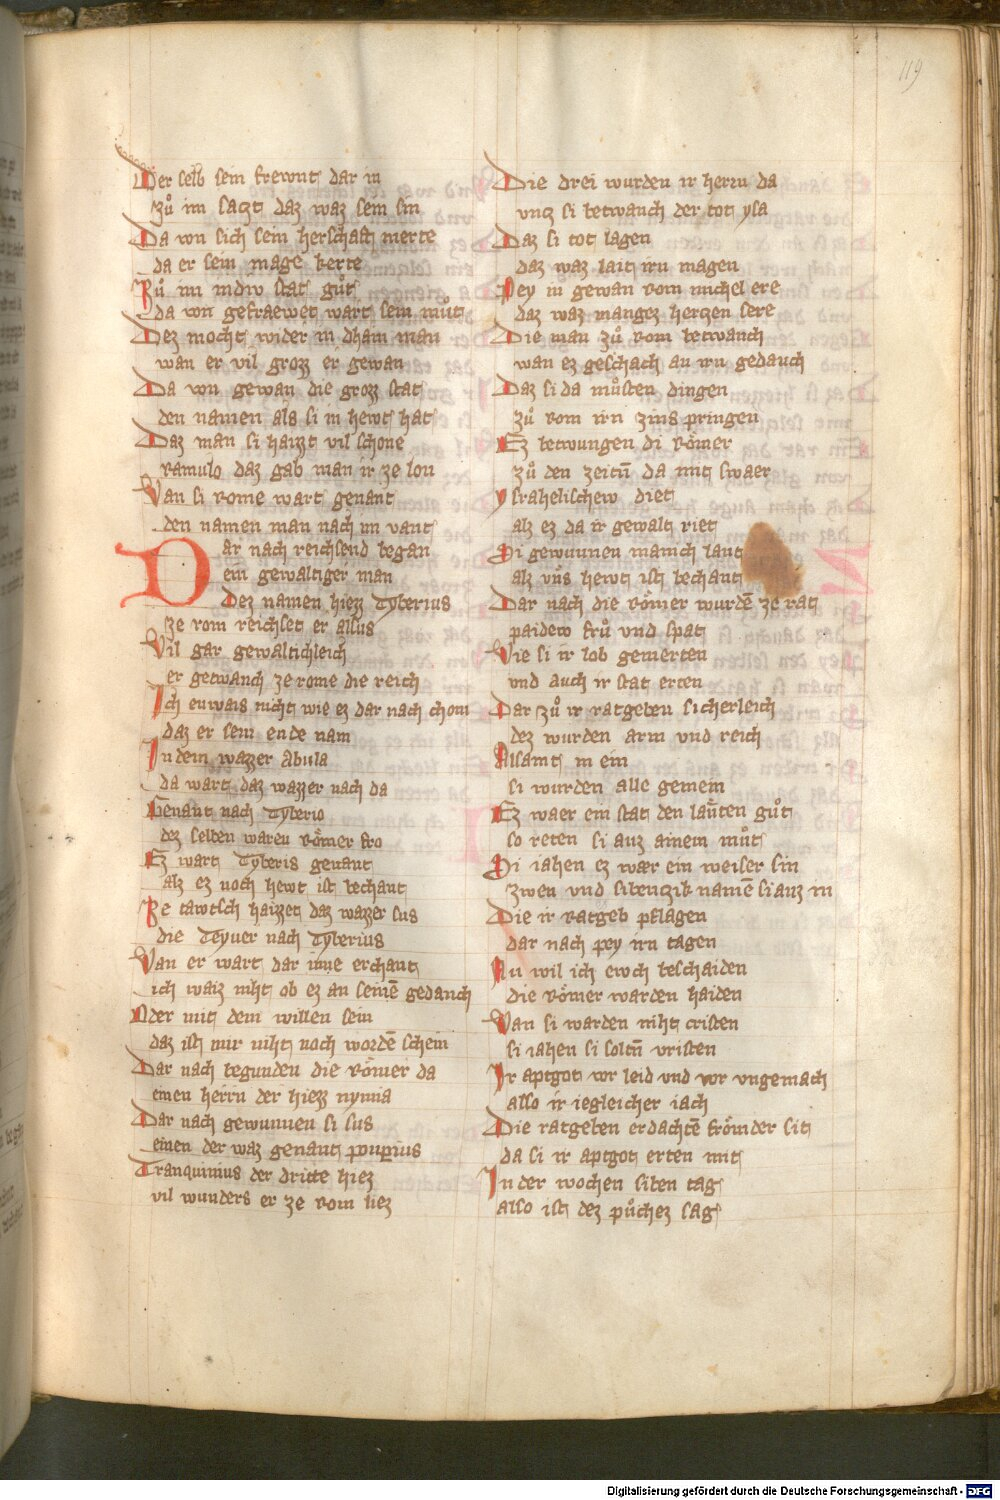 119
Der selb sein frewnt dar in
zů im sagt daz waz sein sin
Da von sich sein herschaft merte
da er sein mage kerte
Zů im in diu stat gůt
da von gefraewet wart sein můt
Dez mocht wider in dhain man
wan er vil grozz er gewan
Da von gewan die grozz stat
den namen als si in hewt hat
Daz man si haizzt vil schone
ramulo daz gab man ir ze lon
Wan si rome wart genant
den namen man nach im vant
Dar nach reichsend began
ein gewaltiger man
Dez namen hiezz Tyberius
ze rom reichset er alsus
Vil gar gewaltichleich
er getwanch ze rome die reich
Ich enwais nicht wie ez dar nach chom
daz er sein ende nam
In dem wazzer abula
da wart daz wazzer nach da
Genant nach Tyberio
dez selben waren Römer fro
Ez wart Tyberis genant
alz ez noch hewt ist bechant
Ze tawtsch haizzet daz wazzer sus
die Teyuer nach Tyberius
Wan er wart dar inne erchant
ich waiz niht ob ez an seinē gedanch
Oder mit dem willen sein
daz ist mir niht noch wordē schein
Dar nach begunden die Römer da
einen herrn der hiezz nynnia
Dar nach gewunnen si sus
einen der waz genant pompius
Tranquinius der dritte hiez
vil wunders er ze rom liez
Die drei wurden ir herrn da
vntz si betwanch der tot ysa
Daz si tot lagen
daz waz lait irn magen
Pey in gewan rom michel ere
daz waz mangez hertzen sere
Die man zů rom betwanch
wan ez geschach an irn gedanch
Daz si da můsten dingen
zů rom irn zins pringen
Ez betwungen di Römer
zů den zeitn̄ da mit swaer
ysrahelischew diet
alz ez da ir gewalt riet
Si gewunnen manich lant
alz vns hewt ist bechant
Dar nach die Römer wurdē ze rat
paidew frů vnd spat
Wie si ir lob gemerten
vnd auch ir stat erten
Dar zů ir ratgeben sicherleich
dez wurden arm vnd reich
Alsamt in ein
si wurden alle gemein
Ez waer ein stat den läuten gůt
so reten si auz ainem můt
Si iahen ez waer ein weiser sin
zwen vnd sibentzik namē si auz in
Die ir ratgeb pflagen
dar nach pey irn tagen
Nu wil ich ewch beschaiden
die Römer warden haiden
Wan si warden niht cristen
si iahen si soltn̄ vristen
Ir aptgot vor leid vnd vor vngemach
also ir iegleicher iach
Die ratgeben erdachtē frömder sit
da si ir aptgot erten mit
In der wochen siben tag
also ist dez půchez sag
Digitalisierung gefördert durch die Deutsche Forschungsgemeinschaft - DFG